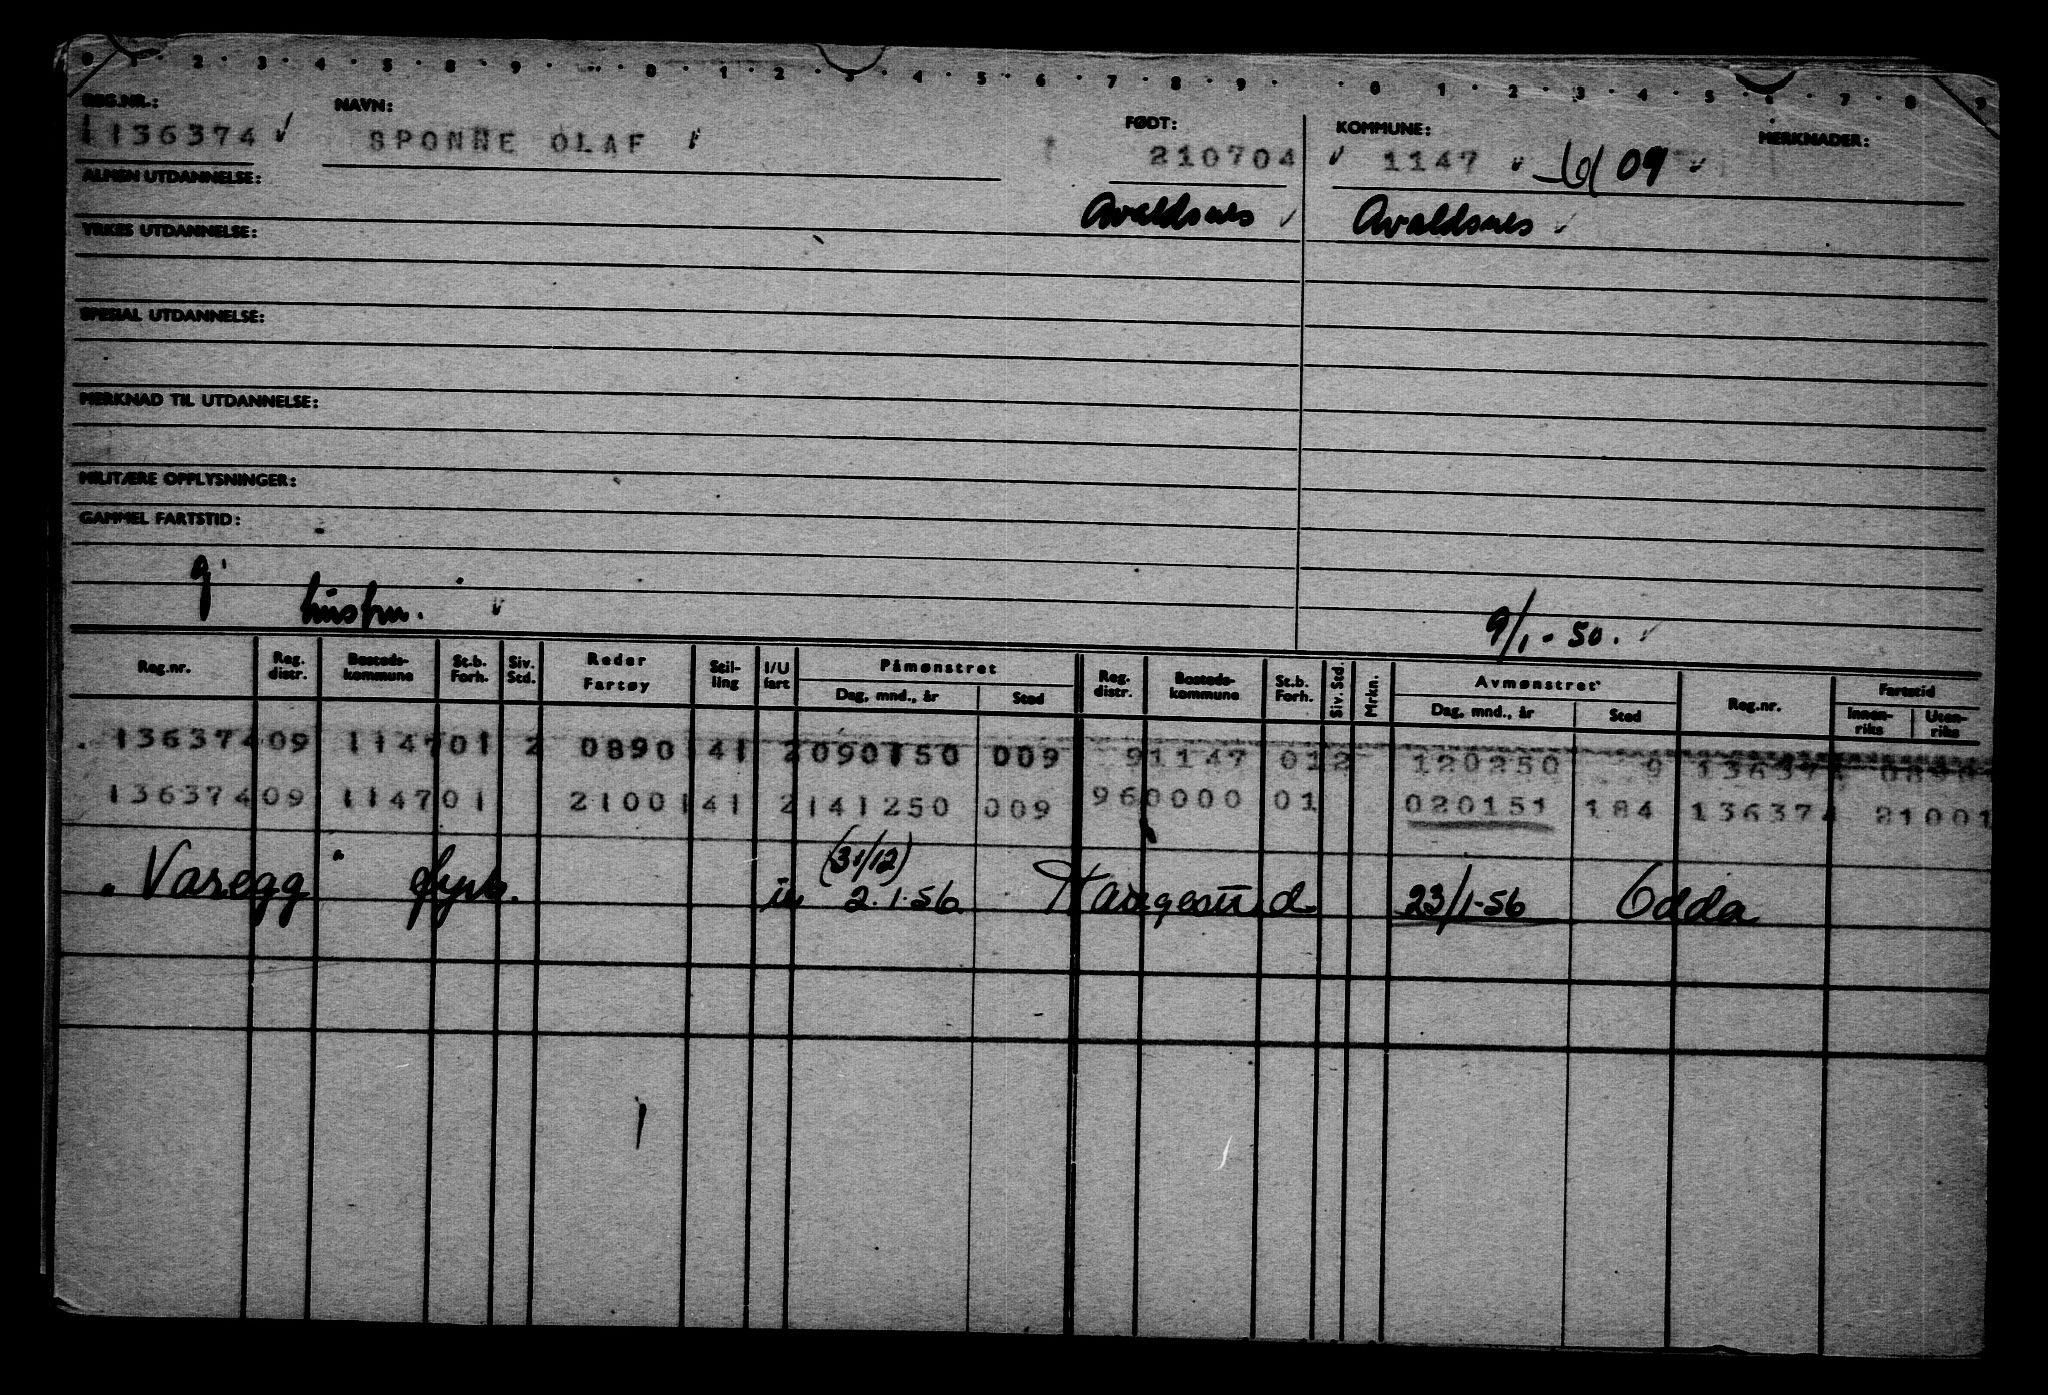 0 · 1 · 2 · 3 · 4 · 5 · 8 · 9 · · 0 · 1 · 2 · 3 · 4 · 5 · 6 · 7 · 8 · 9 · · 0 · 1 · 2 · 3 · 4 · 5 · 6 · 7 · 8 · 9
REG.NR.: NAVN: FØDT: KOMMUNE: MERKNADER:
1136374 SPONNE OLAF 210704 1147 09
ALMEN UTDANNELSE:
Avaldsnes Avaldsnes
YRKES UTDANNELSE:
SPESIAL UTDANNELSE:
MERKNAD TIL UTDANNELSE:
MILITÆRE OPPLYSNINGER:
GAMMEL FARTSTID:
g
hustru. 9/1-50.
Reg.nr. Reg. distr. Bosteds-kommune St.b. Forh. Siv. Std. Reder Fartøy Stil-ling I/U fart Påmønstret Dag, mnd., år Sted Reg. distr. Bosteds-kommune St.b. Forh. Siv. Std. Mrkn. Avmønstret Dag, mnd., år Sted Reg.nr. Fartstid Innen-riks Uten-riks
136374 09 1147 01 2 0890 141 2 090150 009 9 1147 01 2 120250 9 136374
136374 09 1147 01 2100 141 2 141250 009 96 0000 01 020151 184 136374 21001
(31/12)
Varegg fyrb. in 2.1.56 Haugesund 23/1-56 Odda